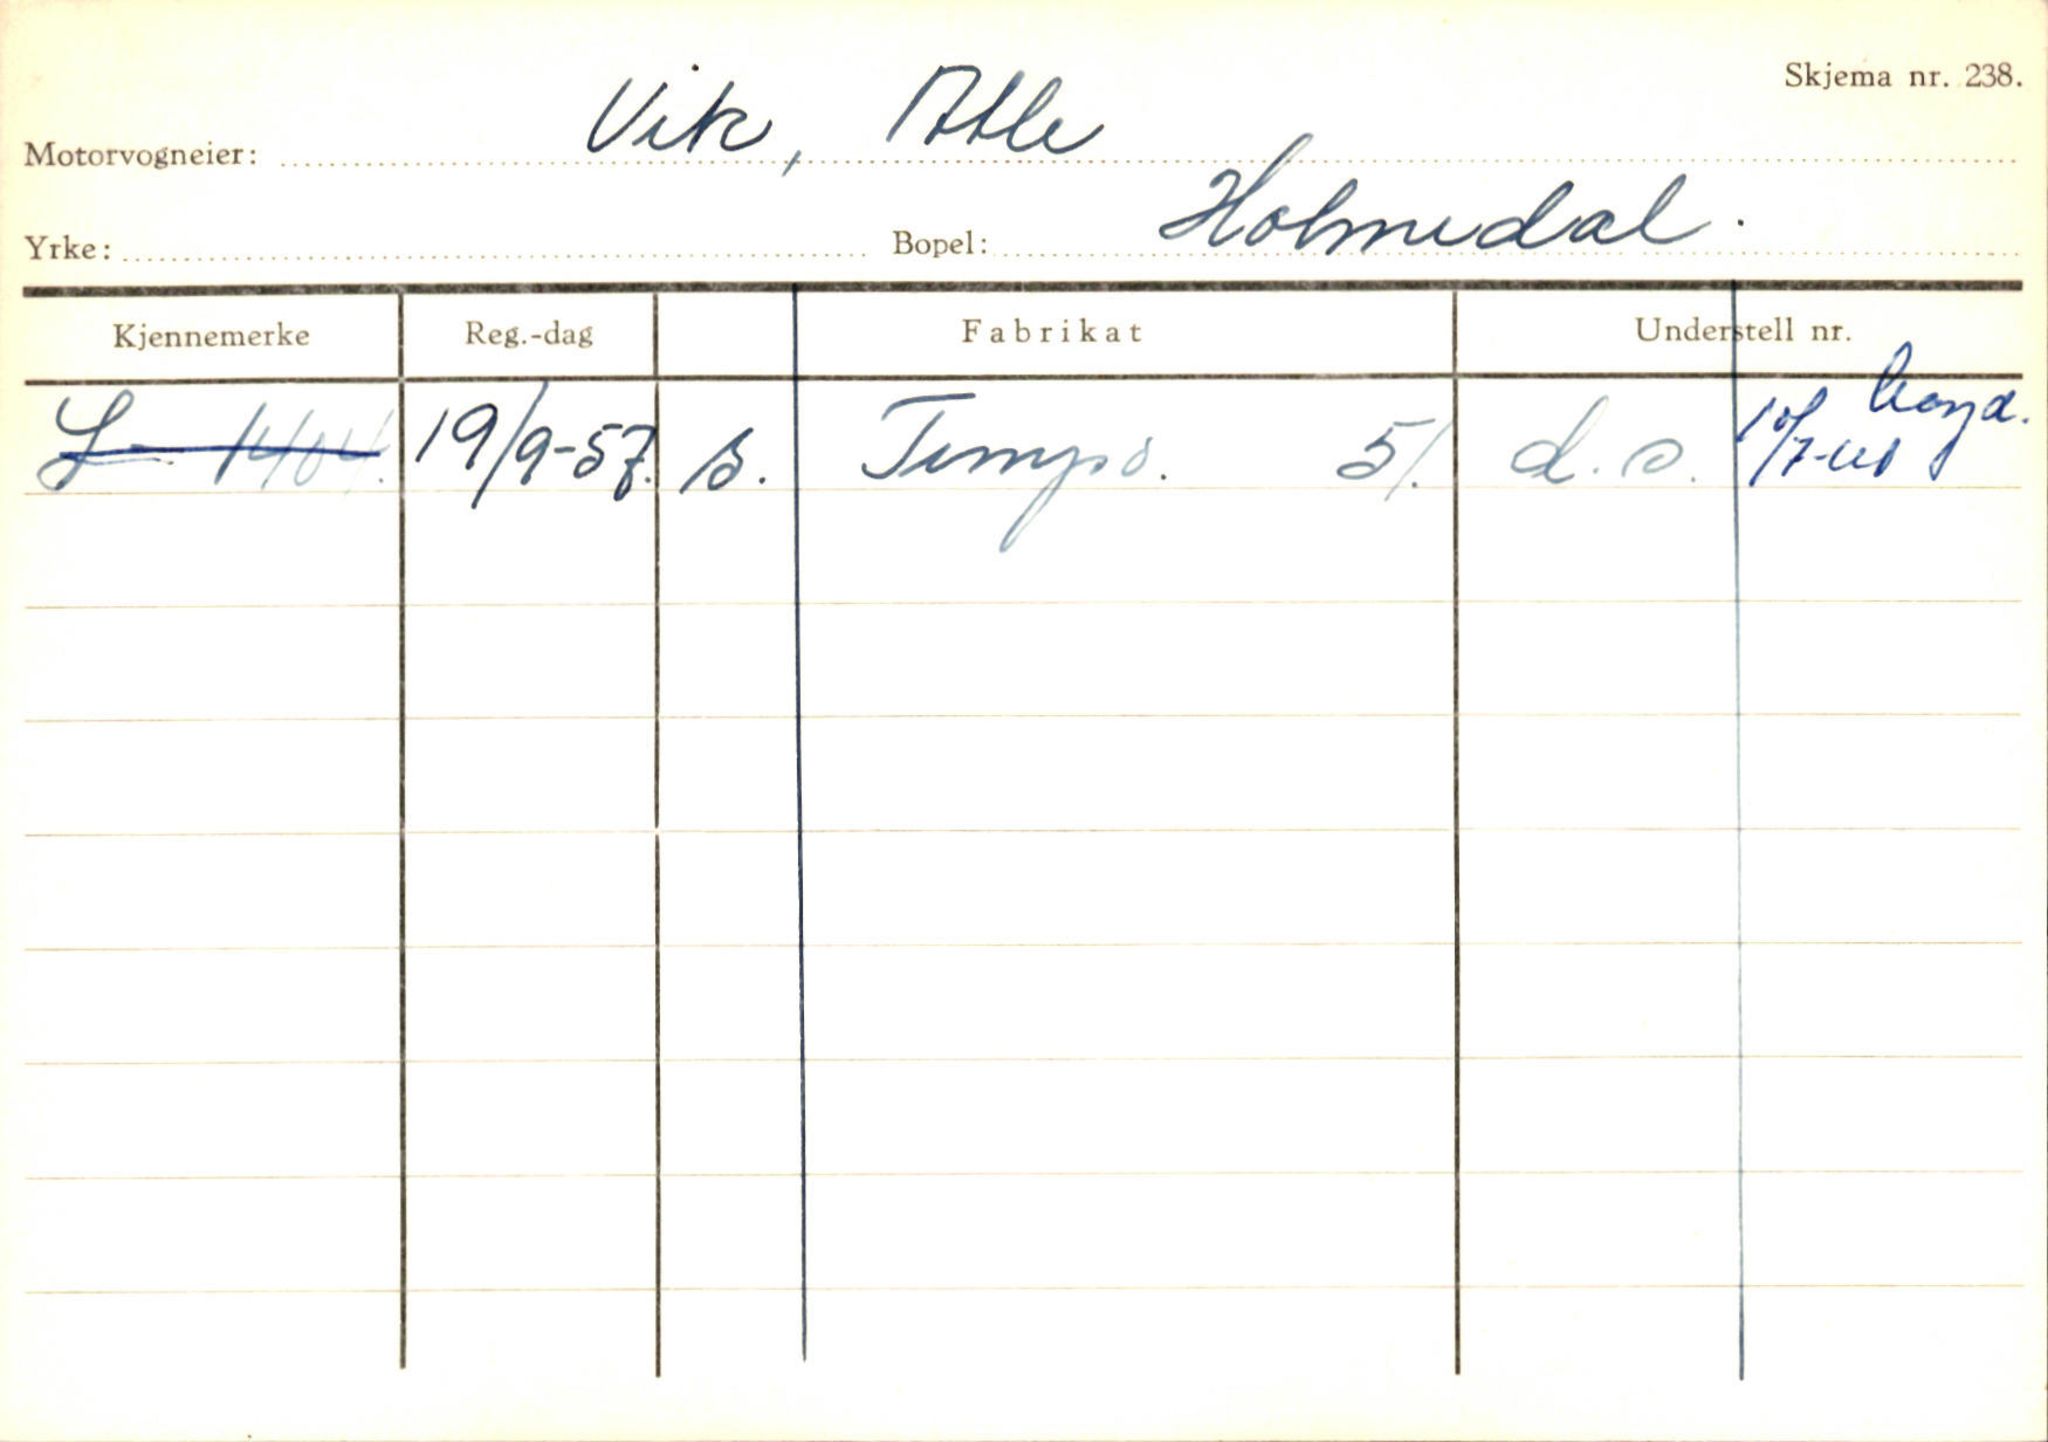 Skjema nr. 238.
Motorvogneier: Vik, Atle
Yrke: Bopel: Holmedal.
Kjennemerke Reg.-dag Fabrikat Understell nr.
S- 19/9-57. S. Tempo. 51. d.s. 10/7-